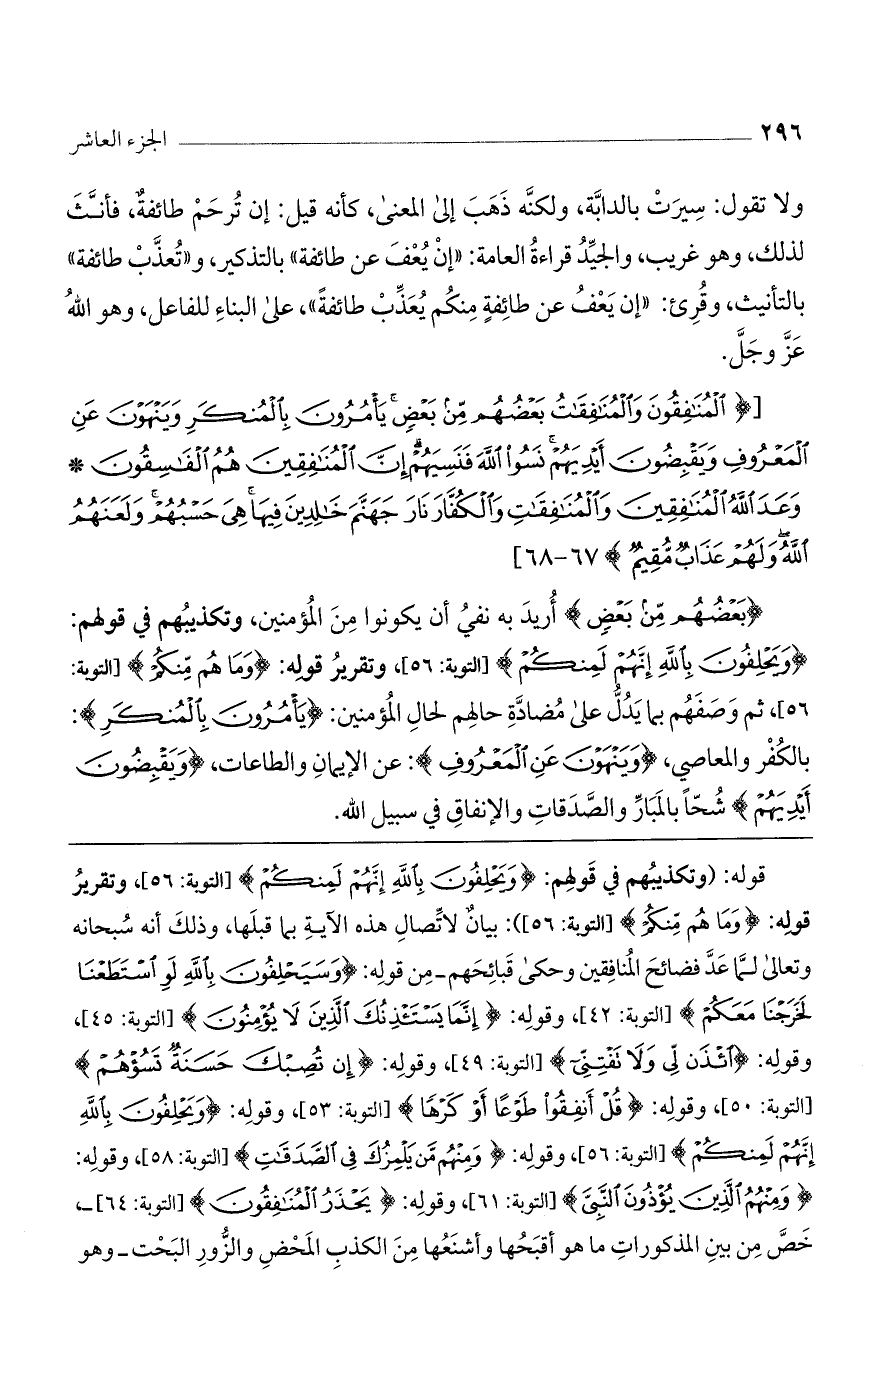 ٢٩٦ الجزء العاشر
ولا تقول: سِيرَتْ بالدابَّة، ولكنَّه ذَهَبَ إلى المعنى، كأنه قيل: إن تُرحَمْ طائفةٌ، فأنـَّثَ
لذلك، وهو غريب، والجيِّدُ قراءةُ العامة: «إنْ يُعْفَ عن طائفة» بالتذكير، و«تُعذَّبْ طائفة»
بالتأنيث، وقُرِئ: «إن يَعْفُ عن طائِفةٍ مِنكُم يُعَذِّبْ طائفةً»، على البناءِ للفاعل، وهو اللهُ
عَزَّ وجَلَّ.
[﴿ ٱلْمُنَٰفِقُونَ وَٱلْمُنَٰفِقَٰتُ بَعْضُهُم مِّنۢ بَعْضٍ ۚ يَأْمُرُونَ بِٱلْمُنكَرِ وَيَنْهَوْنَ عَنِ
ٱلْمَعْرُوفِ وَيَقْبِضُونَ أَيْدِيَهُمْ ۚ نَسُوا۟ ٱللَّهَ فَنَسِيَهُمْ ۗ إِنَّ ٱلْمُنَٰفِقِينَ هُمُ ٱلْفَٰسِقُونَ *
وَعَدَ ٱللَّهُ ٱلْمُنَٰفِقِينَ وَٱلْمُنَٰفِقَٰتِ وَٱلْكُفَّارَ نَارَ جَهَنَّمَ خَٰلِدِينَ فِيهَا ۚ هِىَ حَسْبُهُمْ ۚ وَلَعَنَهُمُ
ٱللَّهُ ۖ وَلَهُمْ عَذَابٌ مُّقِيمٌ ﴾ ٦٧-٦٨]
﴿بَعْضُهُم مِّنۢ بَعْضٍ ﴾ أُريدَ به نفيُ أن يكونوا مِنَ المُؤمنين، وتكذيبُهم في قولهم:
﴿وَيَحْلِفُونَ بِٱللَّهِ إِنَّهُمْ لَمِنكُمْ ﴾ [التوبة: ٥٦]، وتقريرُ قولِه: ﴿وَمَا هُم مِّنكُمْ ﴾ [التوبة:
٥٦]، ثم وَصَفَهُم بما يَدُلُّ على مُضادَّةِ حالِهم لحالِ المُؤمنين: ﴿يَأْمُرُونَ بِٱلْمُنكَرِ ﴾:
بالكُفْر والمعاصي، ﴿وَيَنْهَوْنَ عَنِ ٱلْمَعْرُوفِ ﴾: عن الإيمانِ والطاعات، ﴿وَيَقْبِضُونَ
أَيْدِيَهُمْ ﴾ شُحّاً بالمَبَارِّ والصَّدَقاتِ والإنفاقِ في سبيل الله.
قوله: (وتكذيبُهم في قَولِهِم: ﴿ وَيَحْلِفُونَ بِٱللَّهِ إِنَّهُمْ لَمِنكُمْ ﴾ [التوبة: ٥٦]، وتقريرُ
قولِه: ﴿ وَمَا هُم مِّنكُمْ ﴾ [التوبة: ٥٦]): بيانٌ لاتِّصالِ هذه الآيةِ بما قبلَها، وذلكَ أنه سُبحانه
وتعالى لـمَّا عَدَّ فضائحَ المُنافِقين وحكى قَبائِحَهم ـ مِن قولِه: ﴿وَسَيَحْلِفُونَ بِٱللَّهِ لَوِ ٱسْتَطَعْنَا
لَخَرَجْنَا مَعَكُمْ ﴾ [التوبة: ٤٢]، وقولِه: ﴿ إِنَّمَا يَسْتَـْٔذِنُكَ ٱلَّذِينَ لَا يُؤْمِنُونَ ﴾ [التوبة: ٤٥]،
وقولِه: ﴿ٱئْذَن لِّى وَلَا تَفْتِنِّىٓ ﴾ [التوبة: ٤٩]، وقولِه: ﴿ إِن تُصِبْكَ حَسَنَةٌ تَسُؤْهُمْ ﴾
[التوبة: ٥٠]، وقولِه: ﴿ قُلْ أَنفِقُوا۟ طَوْعًا أَوْ كَرْهًا ﴾ [التوبة: ٥٣]، وقولِه: ﴿وَيَحْلِفُونَ بِٱللَّهِ
إِنَّهُمْ لَمِنكُمْ ﴾ [التوبة: ٥٦]، وقولِه: ﴿ وَمِنْهُم مَّن يَلْمِزُكَ فِى ٱلصَّدَقَٰتِ ﴾ [التوبة: ٥٨]، وقولِه:
﴿ وَمِنْهُمُ ٱلَّذِينَ يُؤْذُونَ ٱلنَّبِىَّ ﴾ [التوبة: ٦١]، وقولِه: ﴿ يَحْذَرُ ٱلْمُنَٰفِقُونَ ﴾ [التوبة: ٦٤] ـ،
خَصَّ مِن بينِ المذكوراتِ ما هو أقبَحُها وأشنَعُها مِنَ الكذبِ المَحْضِ والزُّورِ البَحْت ـ وهو